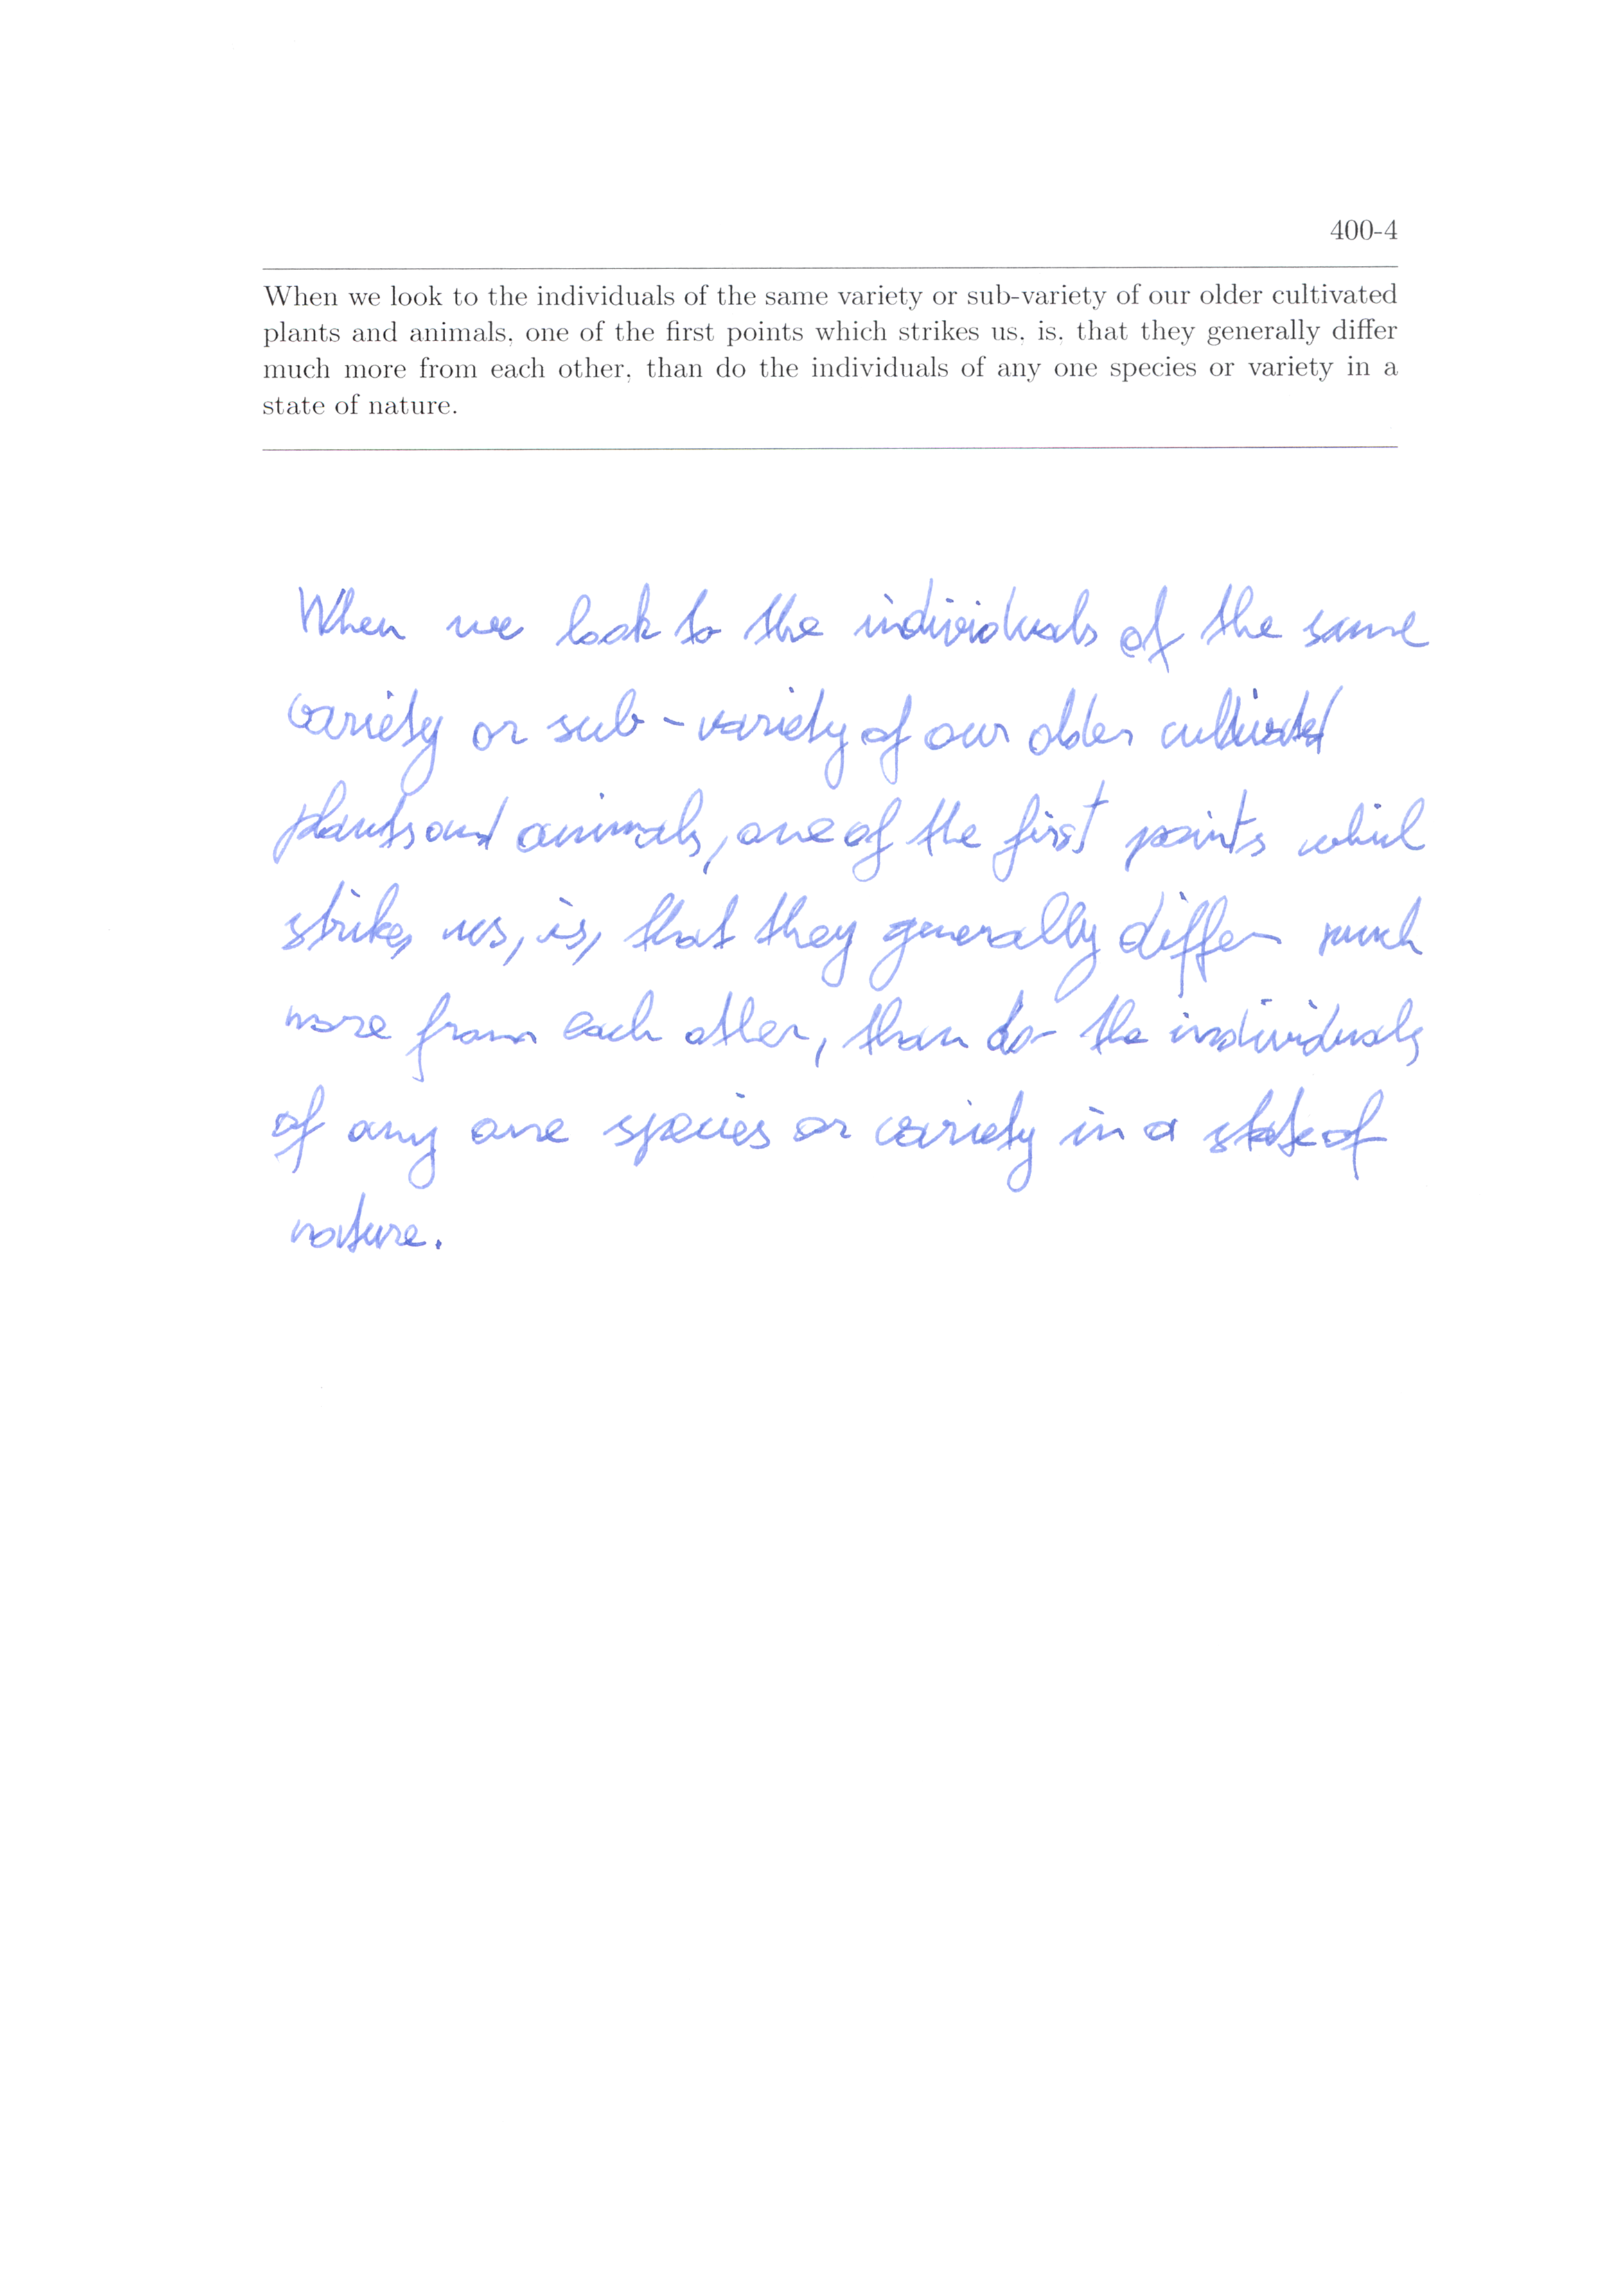 400-4
When we look to the individuals of the same variety or sub-variety of our older cultivated
plants and animals, one of the first points which strikes us, is, that they generally differ
much more from each other, than do the individuals of any one species or variety in a
state of nature.
When we look to the individuals of the same
variety or sub-variety of our older cultivated
plants and animals, one of the first points which
strikes us, is, that they generally differ much
more from each other, than do the individuals
of any one species or variety in a state of
nature.